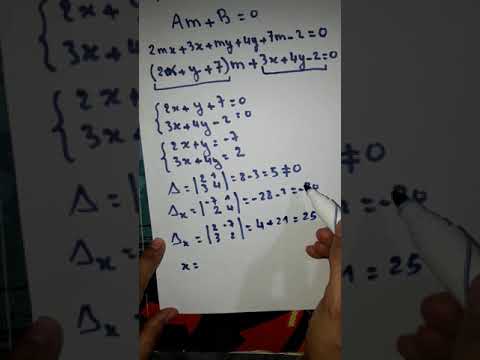 Am+B=0
2mx+3x+my+4y+7m-2=0
(2x+y+7)m+3x+4y-2=0
{2x+y+7=0
3x+4y-2=0
{2x+y=-7
3x+4y=2
Δ=|2 1
3 4|=8-3=5≠0
Δx=|-7 1
2 4|=-28-2=-30
Δx=|2 -7
3 2|=4+21=25
x=